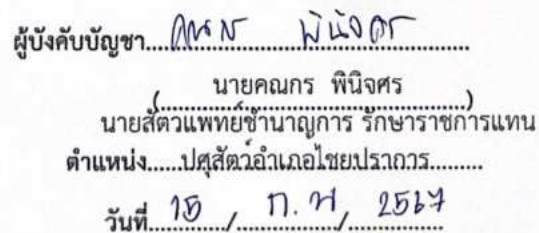 ผู้บังคับบัญชา....คณกร พินิจศร....
(....นายคณกร พินิจศร....)
นายสัตวแพทย์ชำนาญการ รักษาราชการแทน
ตำแหน่ง......ปศุสัตว์อำเภอไชยปราการ.........
วันที่....15..../....ก.พ..../....2567....